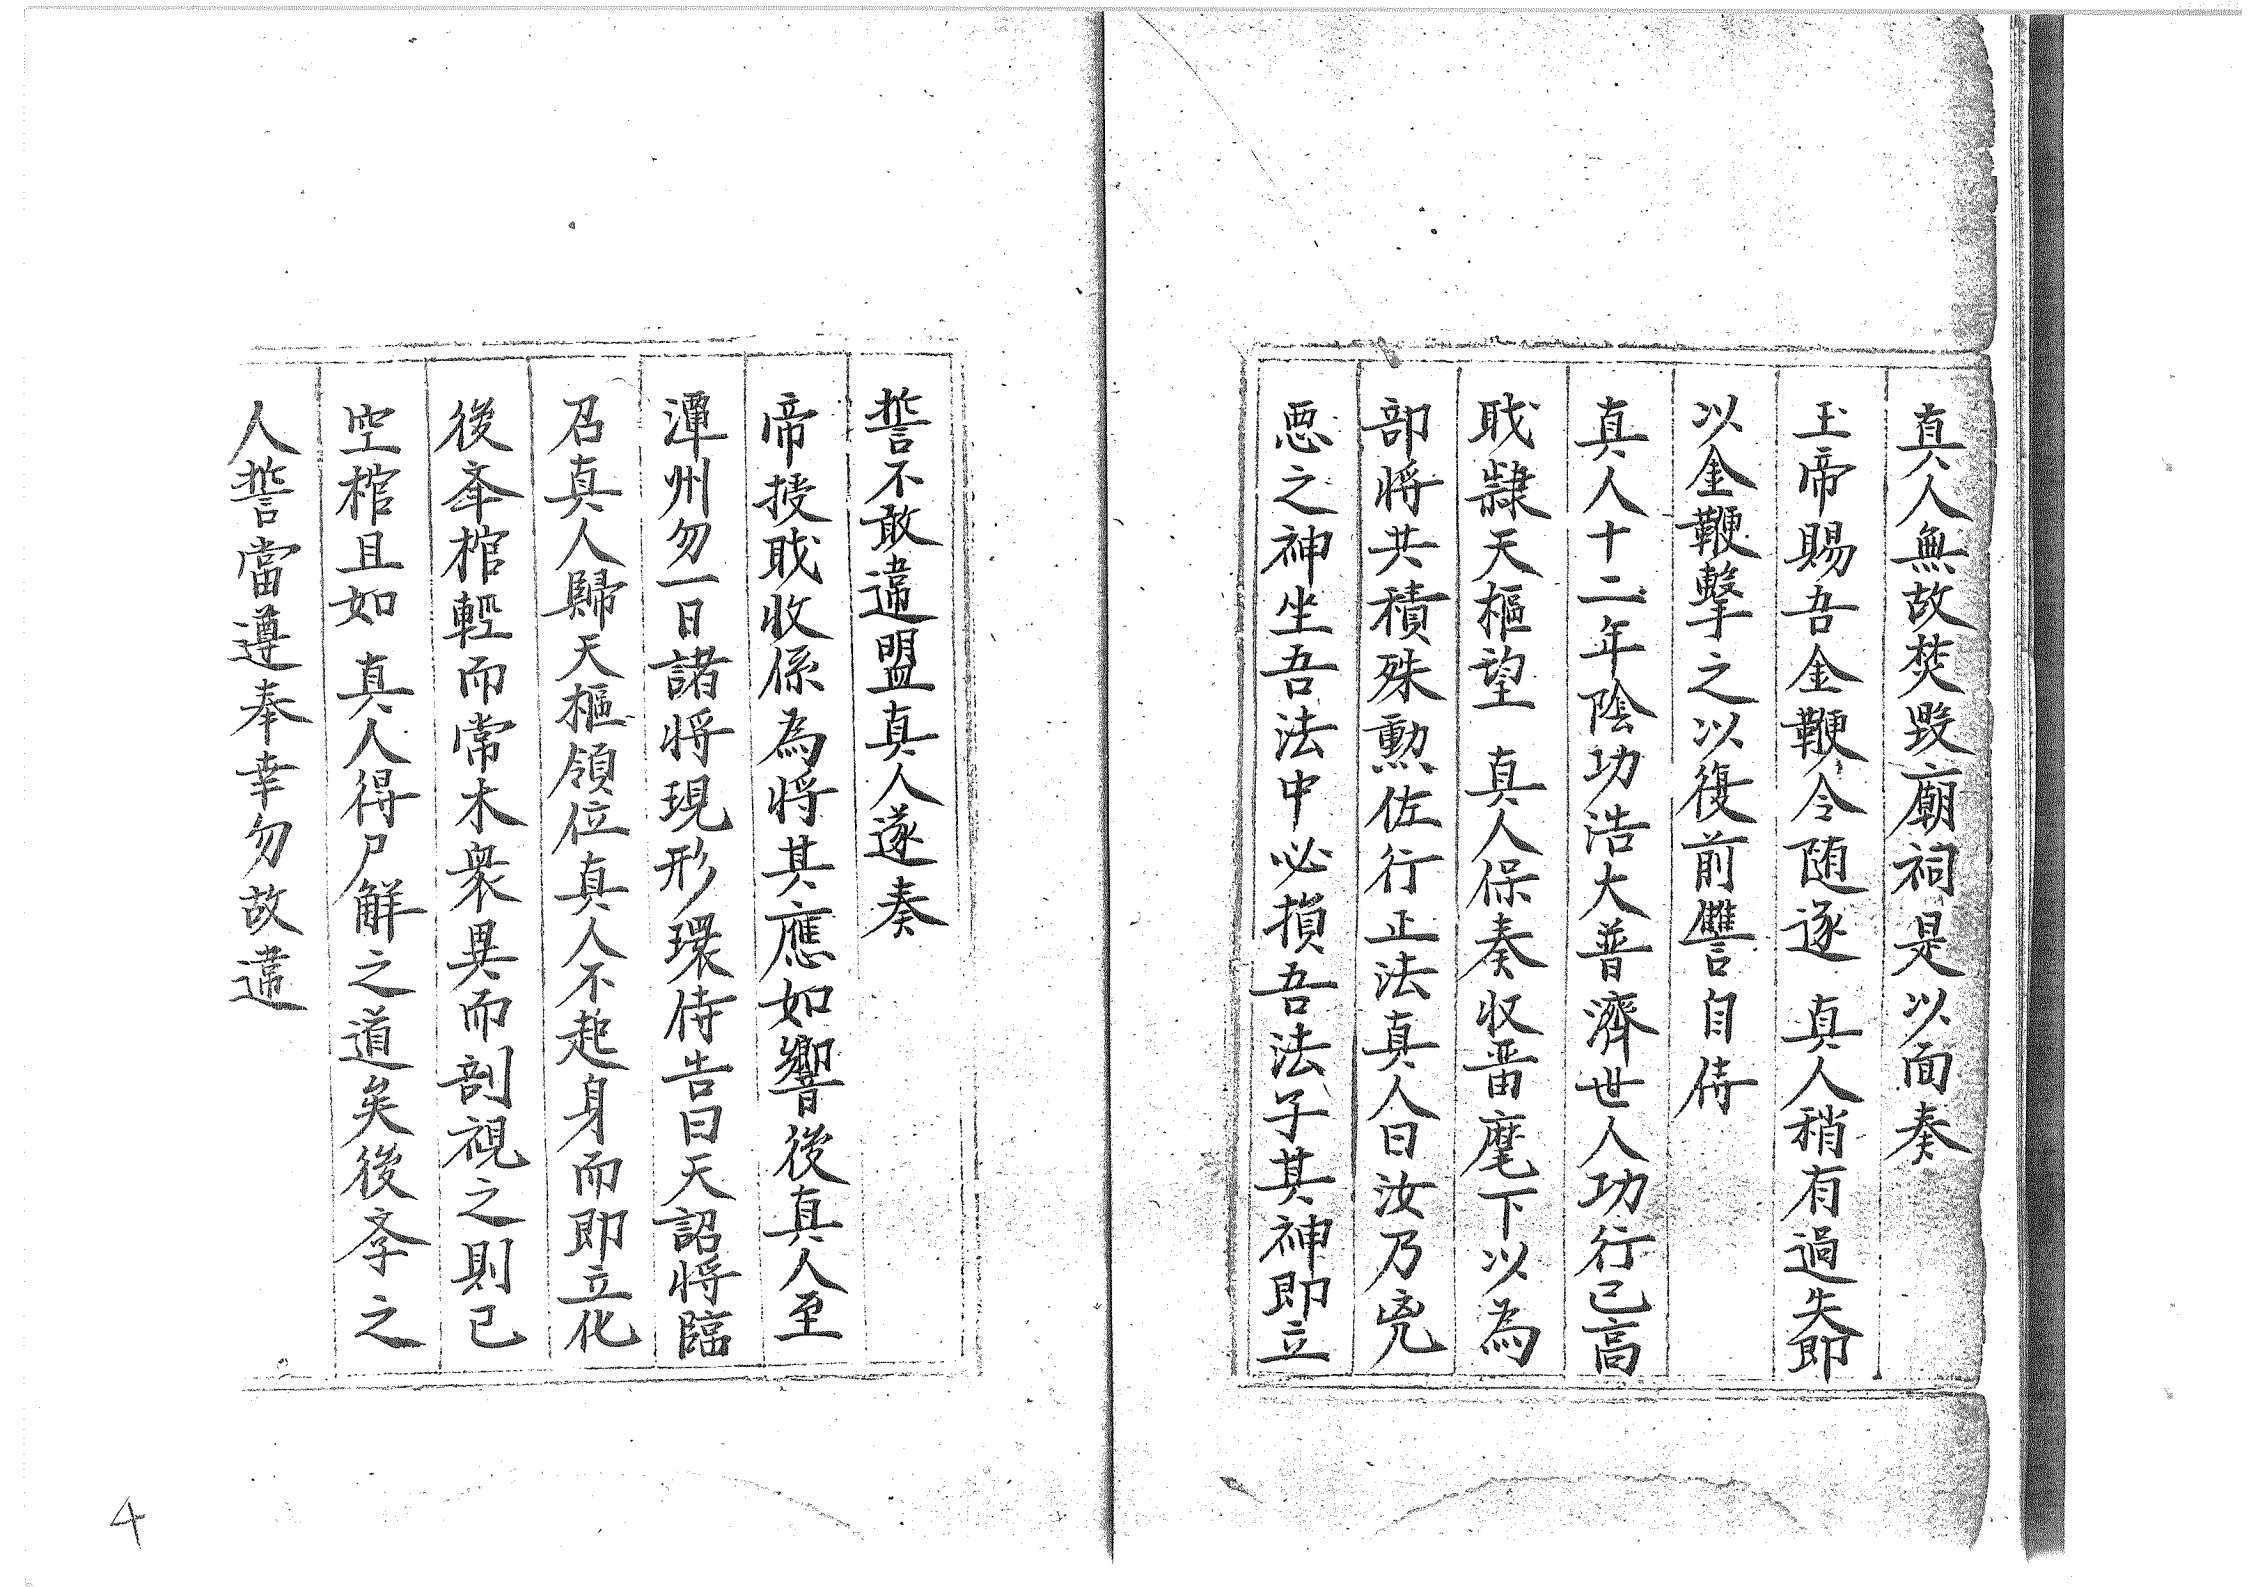 真人無故焚毀廟祠是以面奏
玉帝賜吾金鞭令随逐 真人稍有過失即
以金鞭擊之以復前讐自侍
真人十二年陰功浩大普濟世人功行已高
职隸天樞望 真人保奏收畱麾下以為
部将共積殊勲佐行正法真人曰汝乃兇
恶之神坐吾法中必損吾法子其神即立
誓不敢違盟真人遂奏
帝授职收係為将其應如響後真人至
潭州勿一日諸将現形環侍告曰天詔将臨
召真人歸天樞領位真人不起身而即立化
後牽棺輕而常木衆異而剖視之則已
空棺且如 真人得尸解之道矣後斈之
人誓當遵奉幸勿故違
4